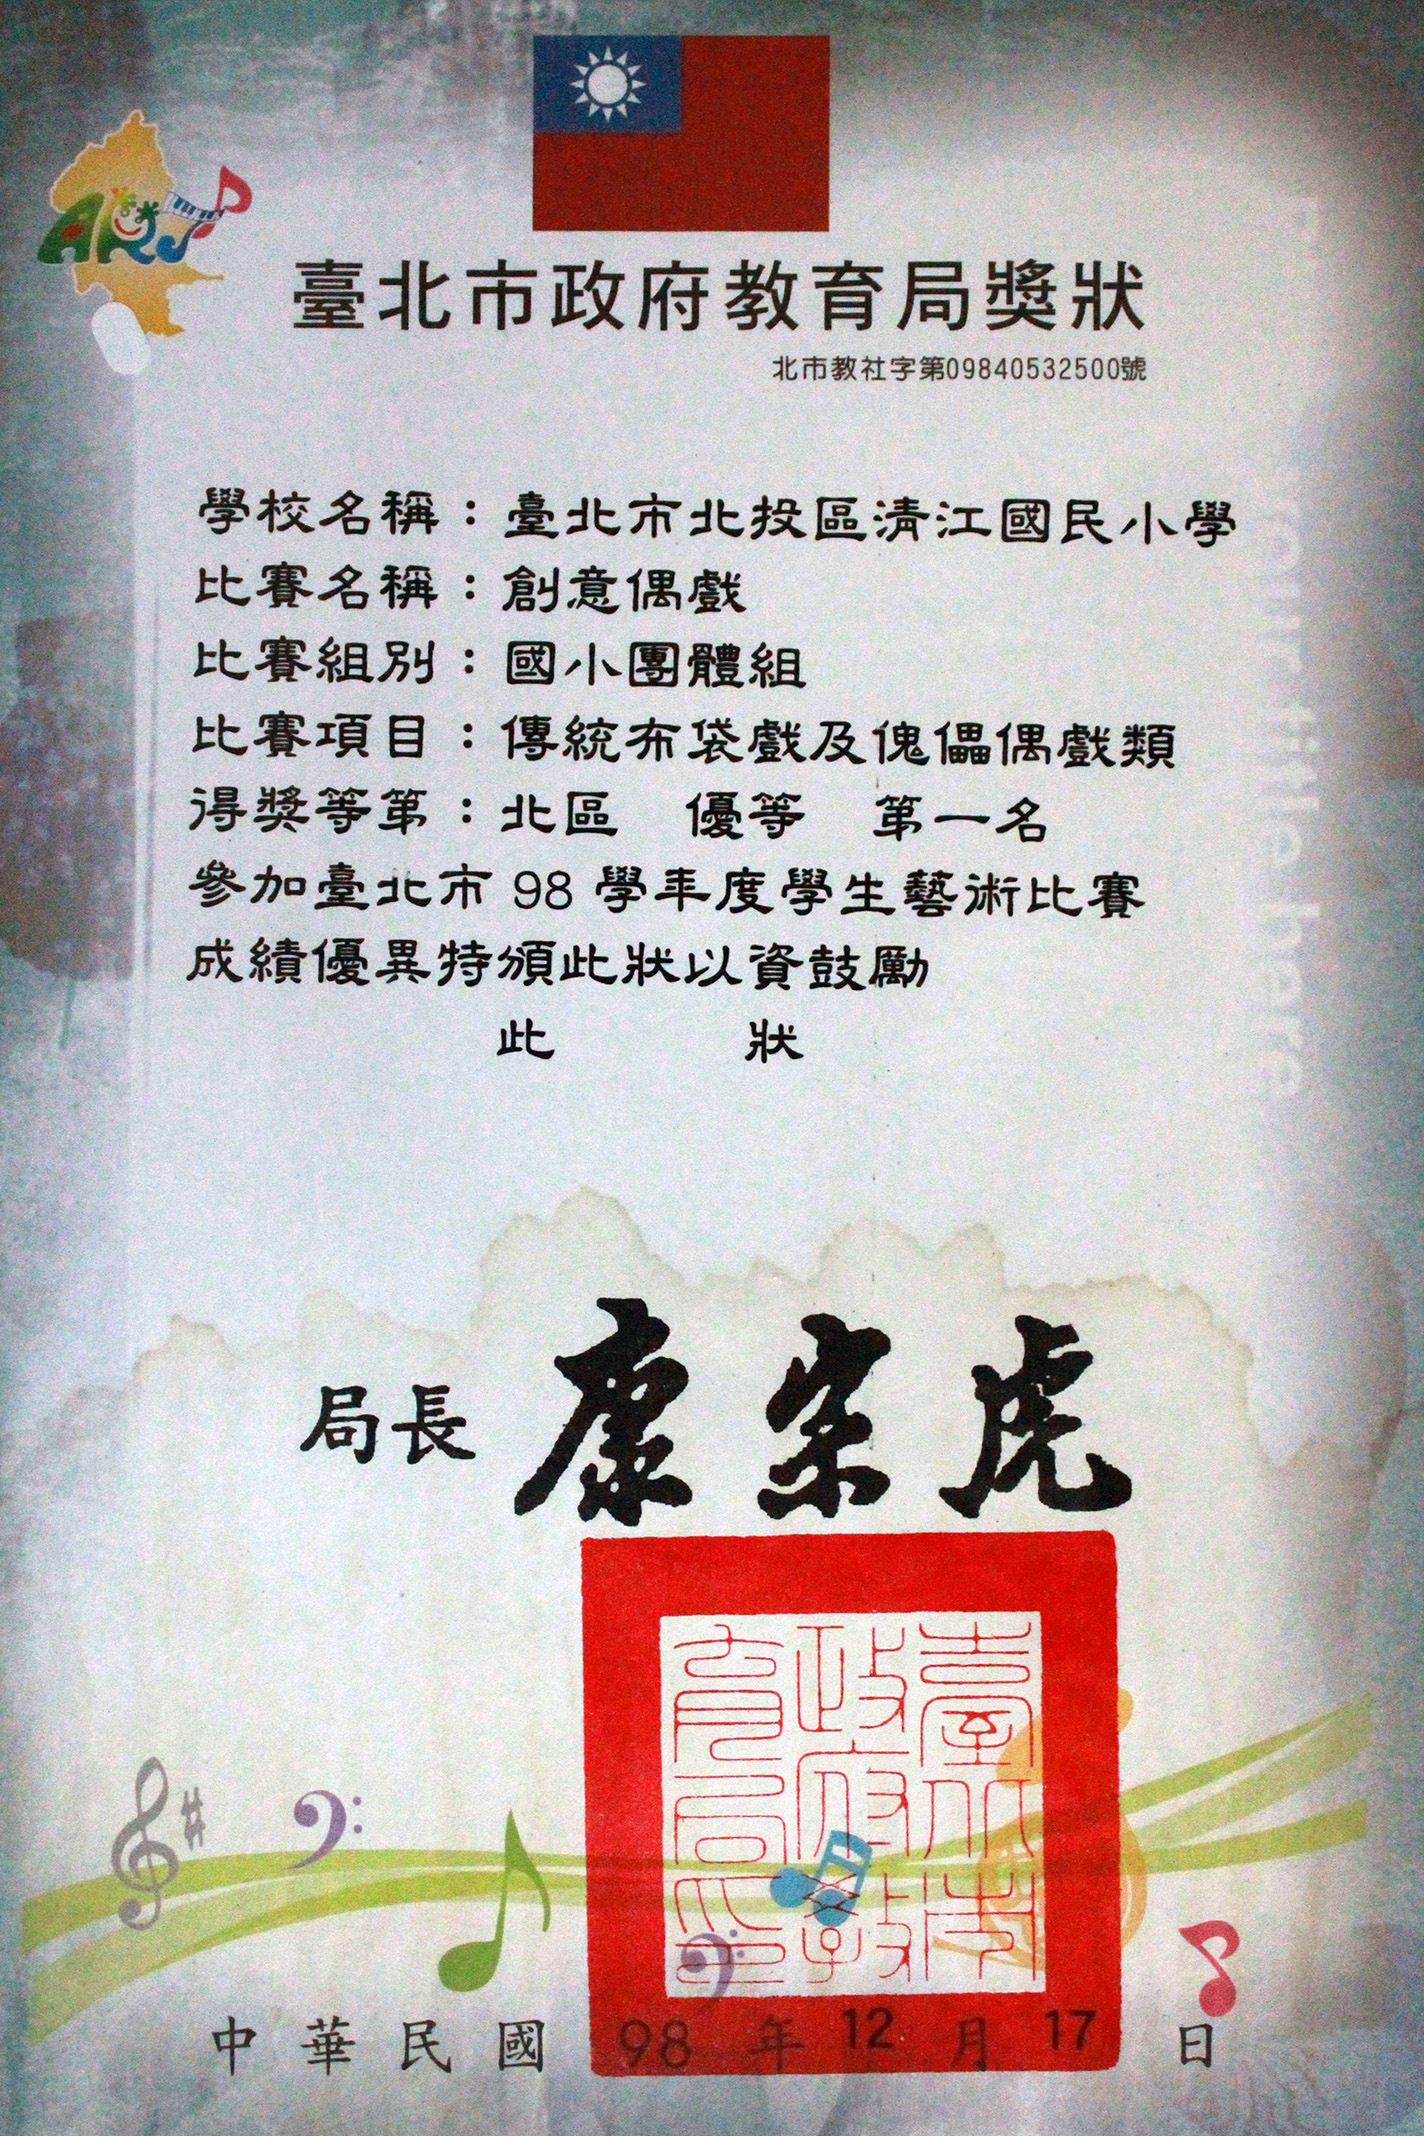 ART
臺北市政府教育局獎狀
北市教社字第09840532500號
學校名稱：臺北市北投區清江國民小學
比賽名稱：創意偶戲
比賽組別：國小團體組
比賽項目：傳統布袋戲及傀儡偶戲類
得獎等第：北區 優等 第一名
參加臺北市 98 學年度學生藝術比賽
成績優異特頒此狀以資鼓勵
此 狀
局長 康宗虎
臺北市政府教育局印
中華民國 98 年 12 月 17 日
your title here